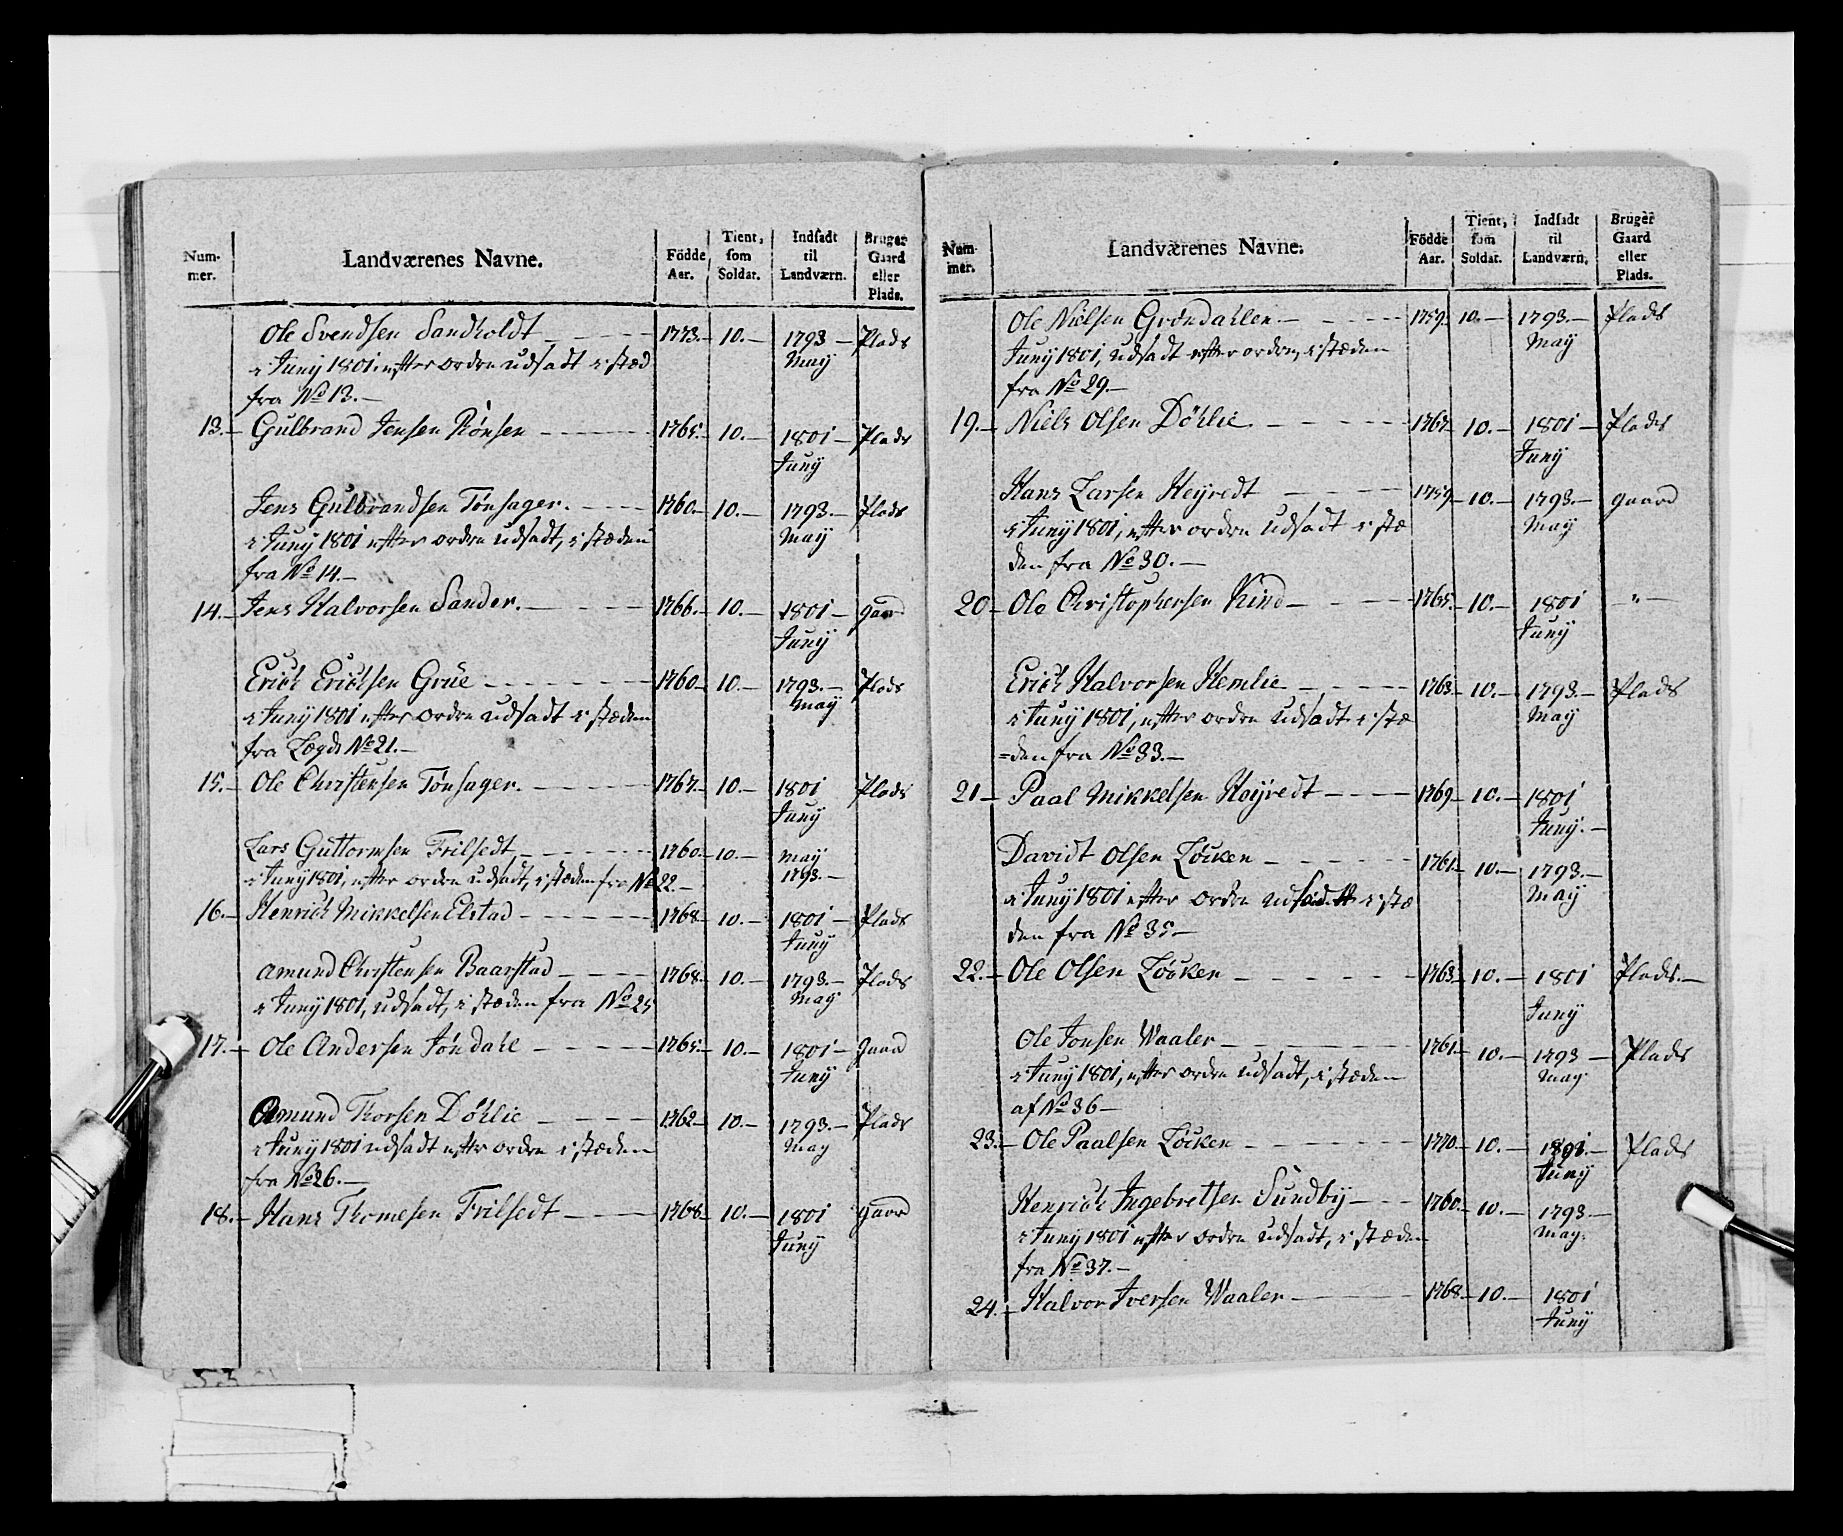 Num-mer. Landværenes Navne. Födde Aar. Tient, som Soldat. Indsadt til Landværn. Bruger Gaard eller Plads.
Ole Svendsen Sandholdt 1773. 10. 1793 May Plads
Juny 1801. efter ordre udsadt i sted
fra No 13.
13. Gulbrand Jensen Rönsen 1765. 10. 1801 Juny Plads
Jens Gulbrandsen Tönsager. 1760. 10. 1793. May Plads
Juny 1801 efter ordre udsadt, i stæden
fra No 14.
14. Jens Halvorsen Sander. 1766. 10. 1801 Juny gaard
Erich Erichsen Grüe 1760 10. 1793. May Plads
Juny 1801 efter ordre udsadt i stæden
fra Lægd No 21.
15. Ole Christensen Tönsager. 1767. 10. 1801 Juny Plads
Lars Guttormsen Frilsedt 1760. 10. May 1793.
Juny 1801, efter ordre udsadt, i stæden fra No 22.
16. Henrich Mikkelsen Elstad 1768 10. 1801 Juny Plads
Amund Christensen Baarstad 1768. 10. 1793. May Plads
Juny 1801, udsadt, i stæden fra No 25
17. Ole Andersen Jöndahl 1765. 10. 1801 Juny gaard
Amund Thorsen Döhlie 1762. 10. 1793. May Plads
Juny 1801 udsadt efter ordre i stæden
fra No 26.
18. Hans Thomesen Frilsedt 1768. 10. 1801 Juny gaard
Num-mer. Landværenes Navne. Födde Aar. Tient, som Soldat. Indsadt til Landværn. Bruger Gaard eller Plads.
Ole Nielsen Grændahlen 1759. 10. 1793. May Plads
Juny 1801, udsadt efter ordre, i stæden
fra No 29.
19. Niels Olsen Döhlie 1767 10. 1801 Juny Plads
Hans Larsen Heyredt 1759 10. 1793. May gaard
Juny 1801, efter ordre udsadt i stæ
den fra No 30.
20 Ole Christophersen Kind 1765. 10. 1801 Juny — " —
Erich Halvorsen Hemlie 1763. 10. 1793. May Plads
Juny 1801, efter ordre udsadt i stæ
=den fra No 33.
21 Paal Mikkelsen Höyredt 1769 10. 1801 Juny.
Davidt Olsen Löcken 1761. 10. 1793. May
Juny 1801 efter ordre udsadt i stæ
den fra No 35
22. Ole Olsen Löcken 1763 10. 1801 Juny Plads.
Ole Jonsen Waaler 1761. 10. 1793 May Plads
Juny 1801, efter ordre udsadt, i stæden
af No 36
23. Ole Paalsen Löcken 1770. 10. 1801. Juny Plads
Henrich Ingebretsen Sundby 1760. 10. 1793. May.
Juny 1801 efter ordre udsadt, i stæden
fra No 37.
24. Halvor Iversen Waaler 1768. 10. 1801 Juny